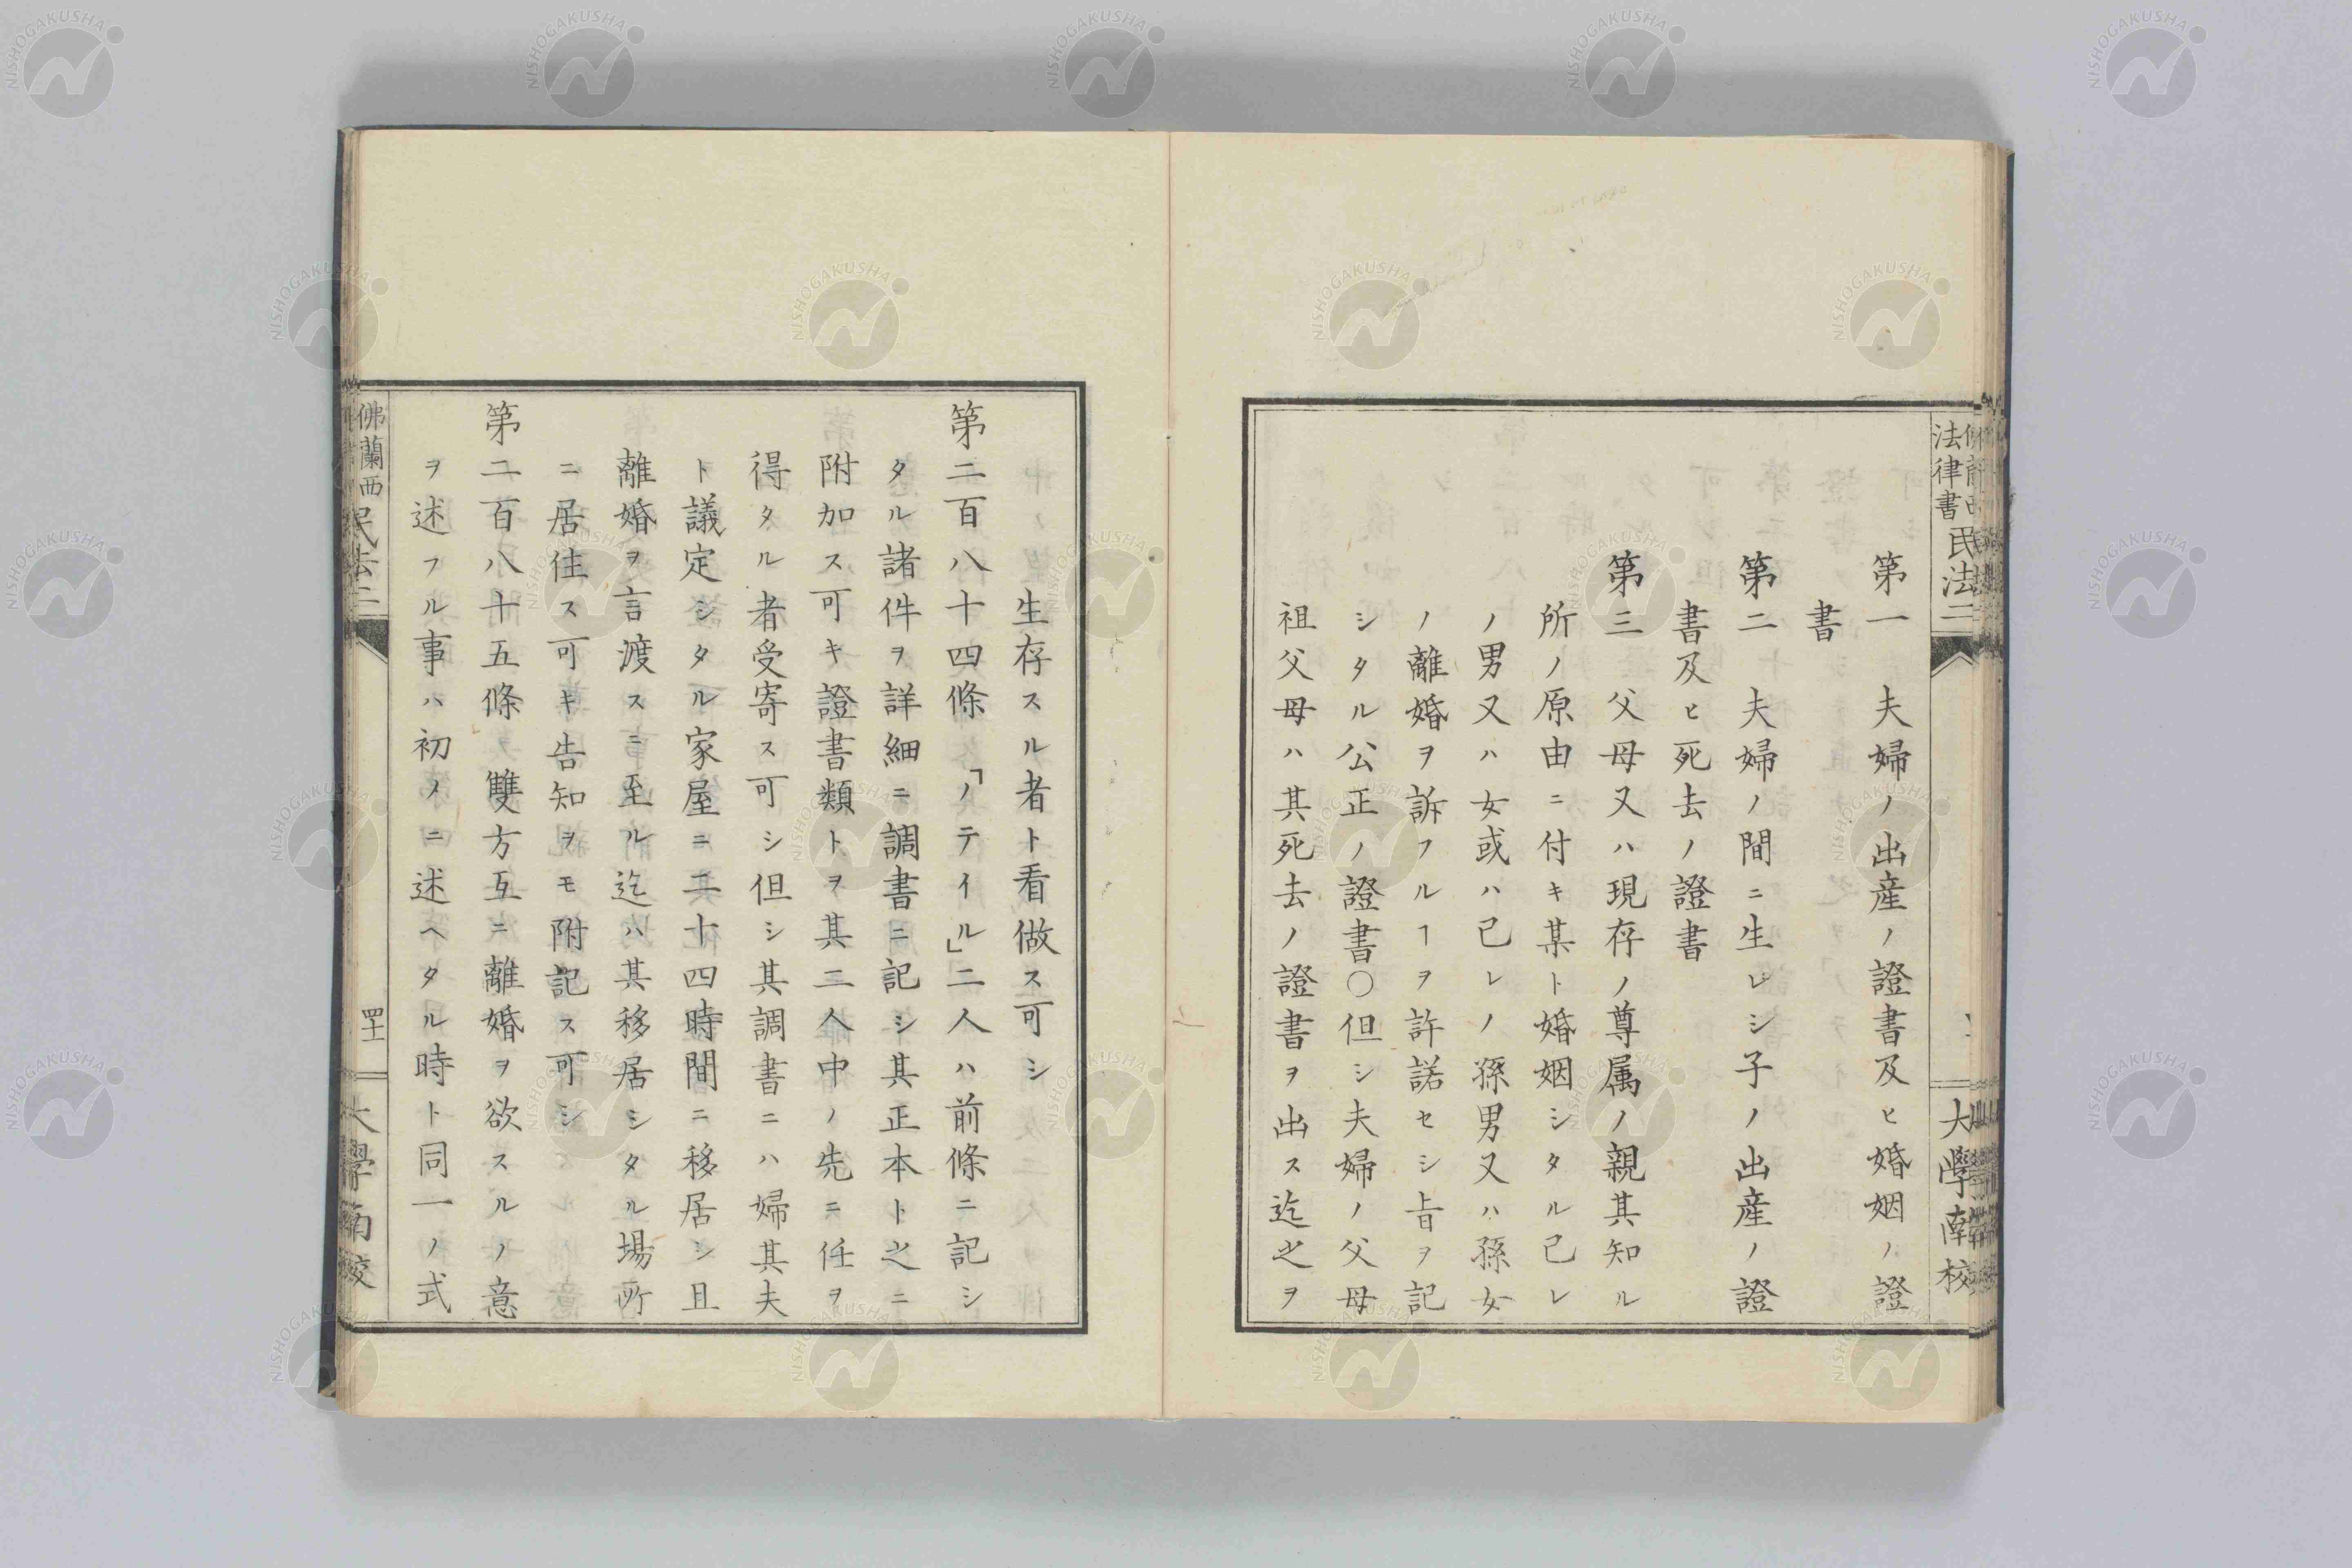 法律書
民法二
大學南校
第一　夫婦ノ出産ノ證書及ヒ婚姻ノ證
書
第二　夫婦ノ間ニ生レシ子ノ出産ノ證
書及ヒ死去ノ證書
第三　父母又ハ現存ノ尊属ノ親其知ル
所ノ原由ニ付キ某ト婚姻シタル己レ
ノ男又ハ女或ハ己レノ孫男又ハ孫女
ノ離婚ヲ訴フルヿヲ許諾セシ旨ヲ記
シタル公正ノ證書〇但シ夫婦ノ父母
祖父母ハ其死去ノ證書ヲ出ス迄之ヲ
生存スル者ト看做ス可シ
第二百八十四條「ノテイル」二人ハ前條ニ記シ
タル諸件ヲ詳細ニ調書ニ記シ其正本ト之ニ
附加ス可キ證書類トヲ其二人中ノ先ニ任ヲ
得タル者受寄ス可シ但シ其調書ニハ婦其夫
ト議定シタル家屋ニ二十四時間ニ移居シ且
離婚ヲ言渡スニ至ル迄ハ其移居シタル場所
ニ居住ス可キ告知ヲモ附記ス可シ
第二百八十五條　雙方互ニ離婚ヲ欲スルノ意
ヲ述フル事ハ初ノニ述ヘタル時ト同一ノ式
佛蘭西
民法二
大學南校
NISHOGAKUSHA